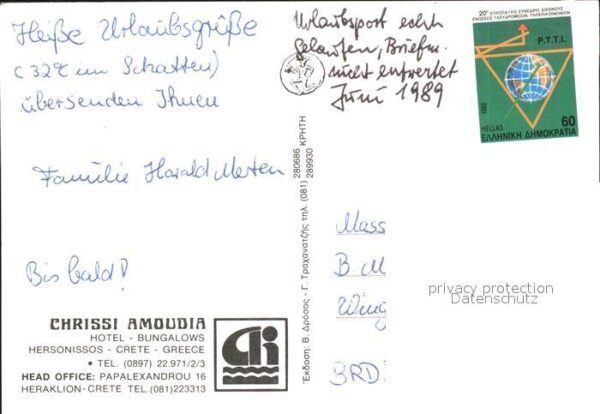 Heiße Urlaubsgrüße
(32° im Schatten)
übersenden Ihnen
Familie Harald Merten
Bis bald!
CHRISSI AMOUDIA
HOTEL - BUNGALOWS
HERSONISSOS - CRETE - GREECE
• TEL. (0897) 22.971/2/3
HEAD OFFICE: PAPALEXANDROU 16
HERAKLION-CRETE TEL.(081)223313
Urlaubspost echt
gelaufen, Briefm.
nicht entwertet
Juni 1989
Έκδοση: Β. Δρόσος - Γ. Τραχανατζής τηλ. (081) 280686 ΚΡΗΤΗ
289930
20º ΕΥΡΩΠΑΪΚΟ ΣΥΝΕΔΡΙΟ ΔΙΕΘΝΟΥΣ
ΕΝΩΣΕΩΣ ΤΑΧΥΔΡΟΜΕΙΩΝ ΤΗΛΕΠΙΚΟΙΝΩΝΙΩΝ
P.T.T.I.
1988
60
HELLAS
ΕΛΛΗΝΙΚΗ ΔΗΜΟΚΡΑΤΙΑ
Mass
B M
Wing
BRD
privacy protection
Datenschutz